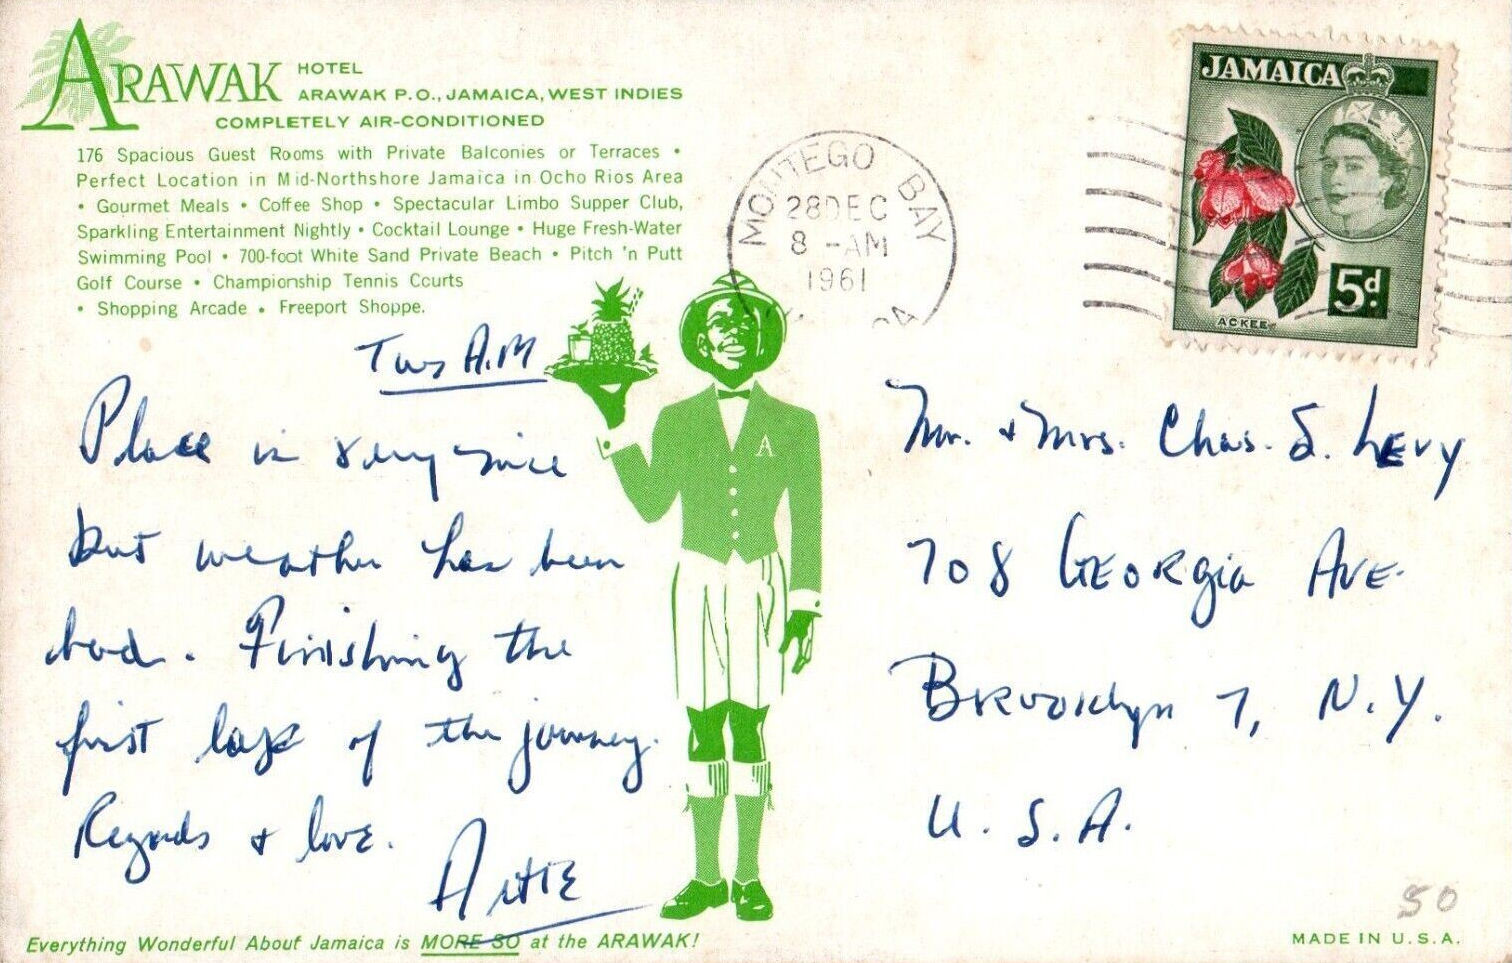 ARAWAK HOTEL
ARAWAK P.O., JAMAICA, WEST INDIES
COMPLETELY AIR-CONDITIONED
176 Spacious Guest Rooms with Private Balconies or Terraces •
Perfect Location in Mid-Northshore Jamaica in Ocho Rios Area
• Gourmet Meals • Coffee Shop • Spectacular Limbo Supper Club,
Sparkling Entertainment Nightly • Cocktail Lounge • Huge Fresh-Water
Swimming Pool • 700-foot White Sand Private Beach • Pitch 'n Putt
Golf Course • Championship Tennis Courts
• Shopping Arcade • Freeport Shoppe.
MONTEGO BAY
28 DEC
8 - AM
1961
JAMAICA
5d.
ACKEE
A.M
Place is very nice
but weather has been
bad. Finishing the
first lap of the journey.
Regards + love.
Artie
A
Mr. + Mrs. Chas. S. Levy
708 Georgia Ave.
Brooklyn 7, N.Y.
U.S.A.
50
Everything Wonderful About Jamaica is MORE SO at the ARAWAK!
MADE IN U.S.A.